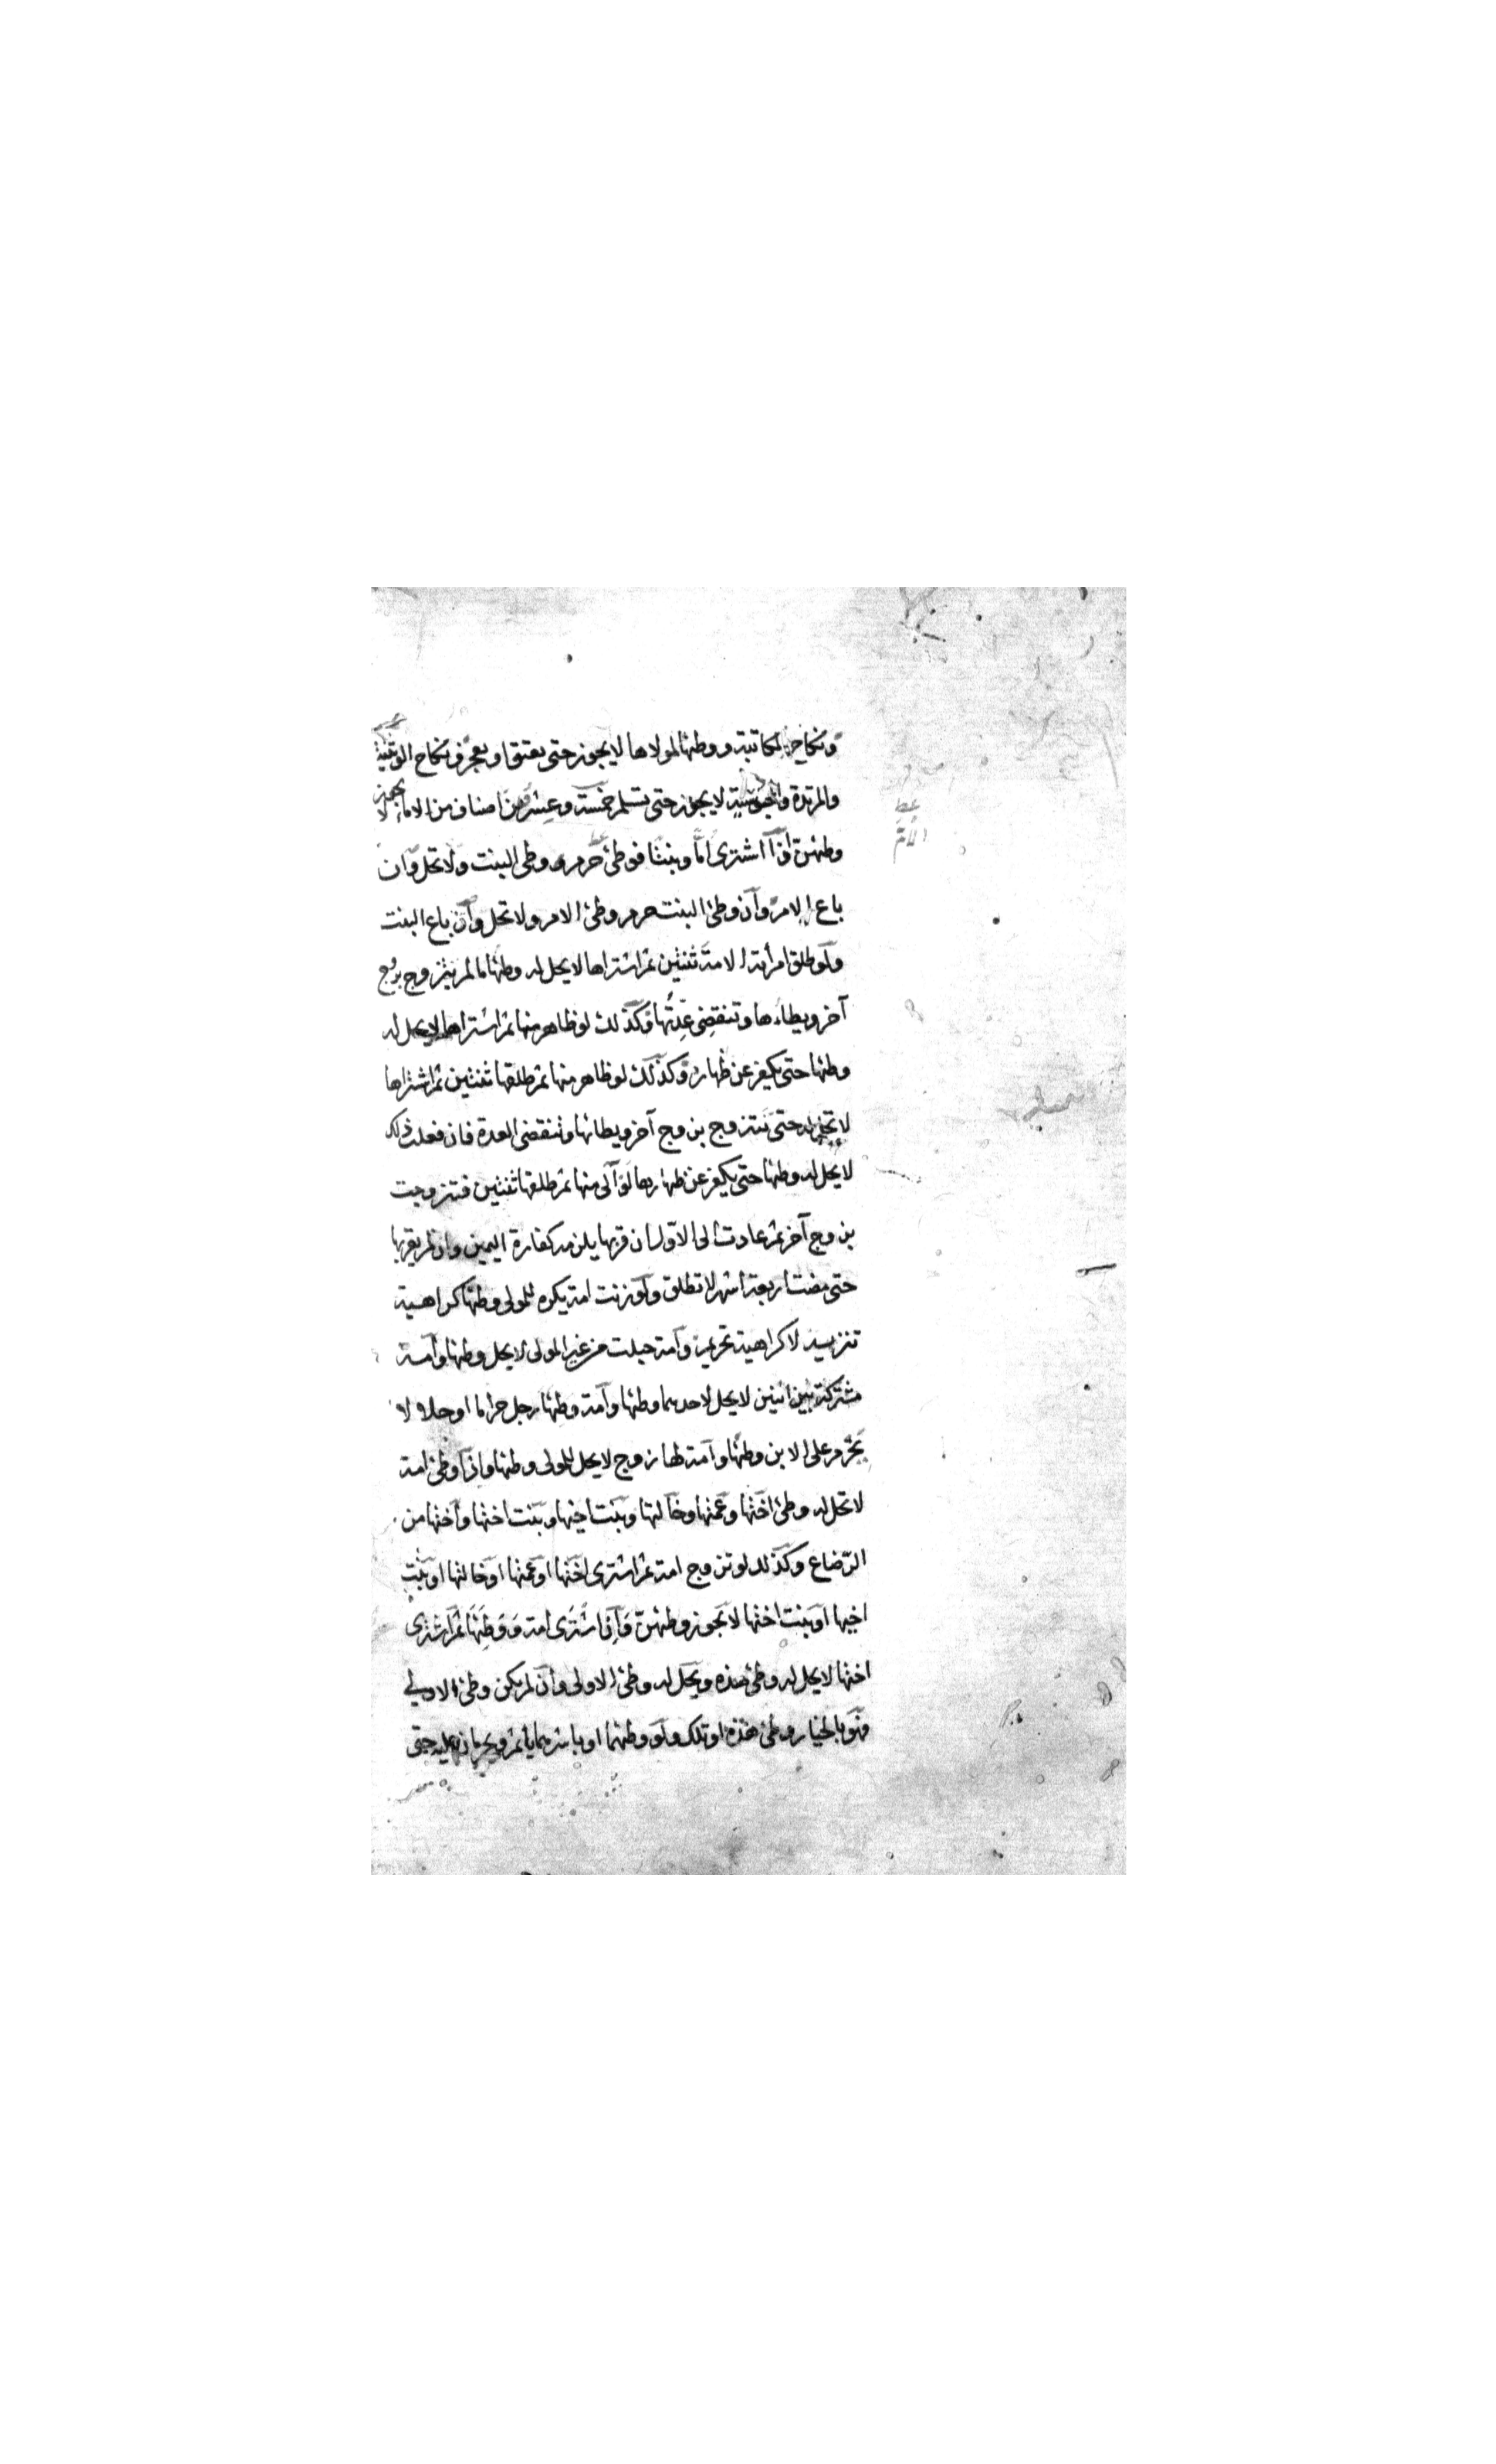 ونكاح المكاتبة ووطئها لمولاها لا يجوز حتى يعتق او يعجز ونكاح الوثنية
والمرتدة والمجوسية لا يجوز حتى تسلم خمسة وعشرون اصنافا من الاماء لا يجوز
وطئهن اذا اشترى اما وبنتا فوطئ حرم وطئ البنت ولا تحل وان
باع الام وان وطئ البنت حرم وطئ الام ولا تحل وان باع البنت
ولو طلق امرأته الامة ثنتين ثم اشتراها لا يحل له وطئها ما لم يتزوج بزوج
آخر ويطاءها وتنقضي عدتها وكذلك لو ظاهر منها ثم اشتراها لا يحل له
وطئها حتى يكفر عن ظهاره وكذلك لو ظاهر منها ثم طلقها ثنتين ثم اشتراها
لا تحل له حتى تتزوج بزوج آخر ويطائها وتنقضي العدة فان فعلت ذلك
لا يحل له وطئها حتى يكفر عن ظهاره لو آلى منها ثم طلقها ثنتين فتزوجت
بزوج آخر ثم عادت الى الاول ان قربها يلزمه كفارة اليمين وان لم يقربها
حتى مضت اربعة اشهر لا تطلق ولو زنت امة يكره للمولى وطئها كراهية
تنزيه لا كراهية تحريم وامة حبلت من غير المولى لا يحل وطئها وامة
مشتركة بين اثنين لا يحل لاحدهما وطئها وامة وطئها رجل حراما او حلالا
يحرم على الابن وطئها وامة لها زوج لا يحل للمولى وطئها واذا وطئ امة
لا تحل له وطئ اختها وعمتها وخالتها وبنت اخيها وبنت اختها واختها من
الرضاع وكذلك لو تزوج امة ثم اشترى اختها او عمتها او خالتها او بنت
اخيها او بنت اختها لا يجوز وطئهن واذا اشترى امة ووطئها ثم اشترى
اختها لا يحل له وطئ هذه ويحل له وطئ الاولى وان لم يكن وطئ الاولى
فهو بالخيار وطئ هذه او تلك ولو وطئهما او باشرهما ياثم ويحرمان عليه حتى
الام